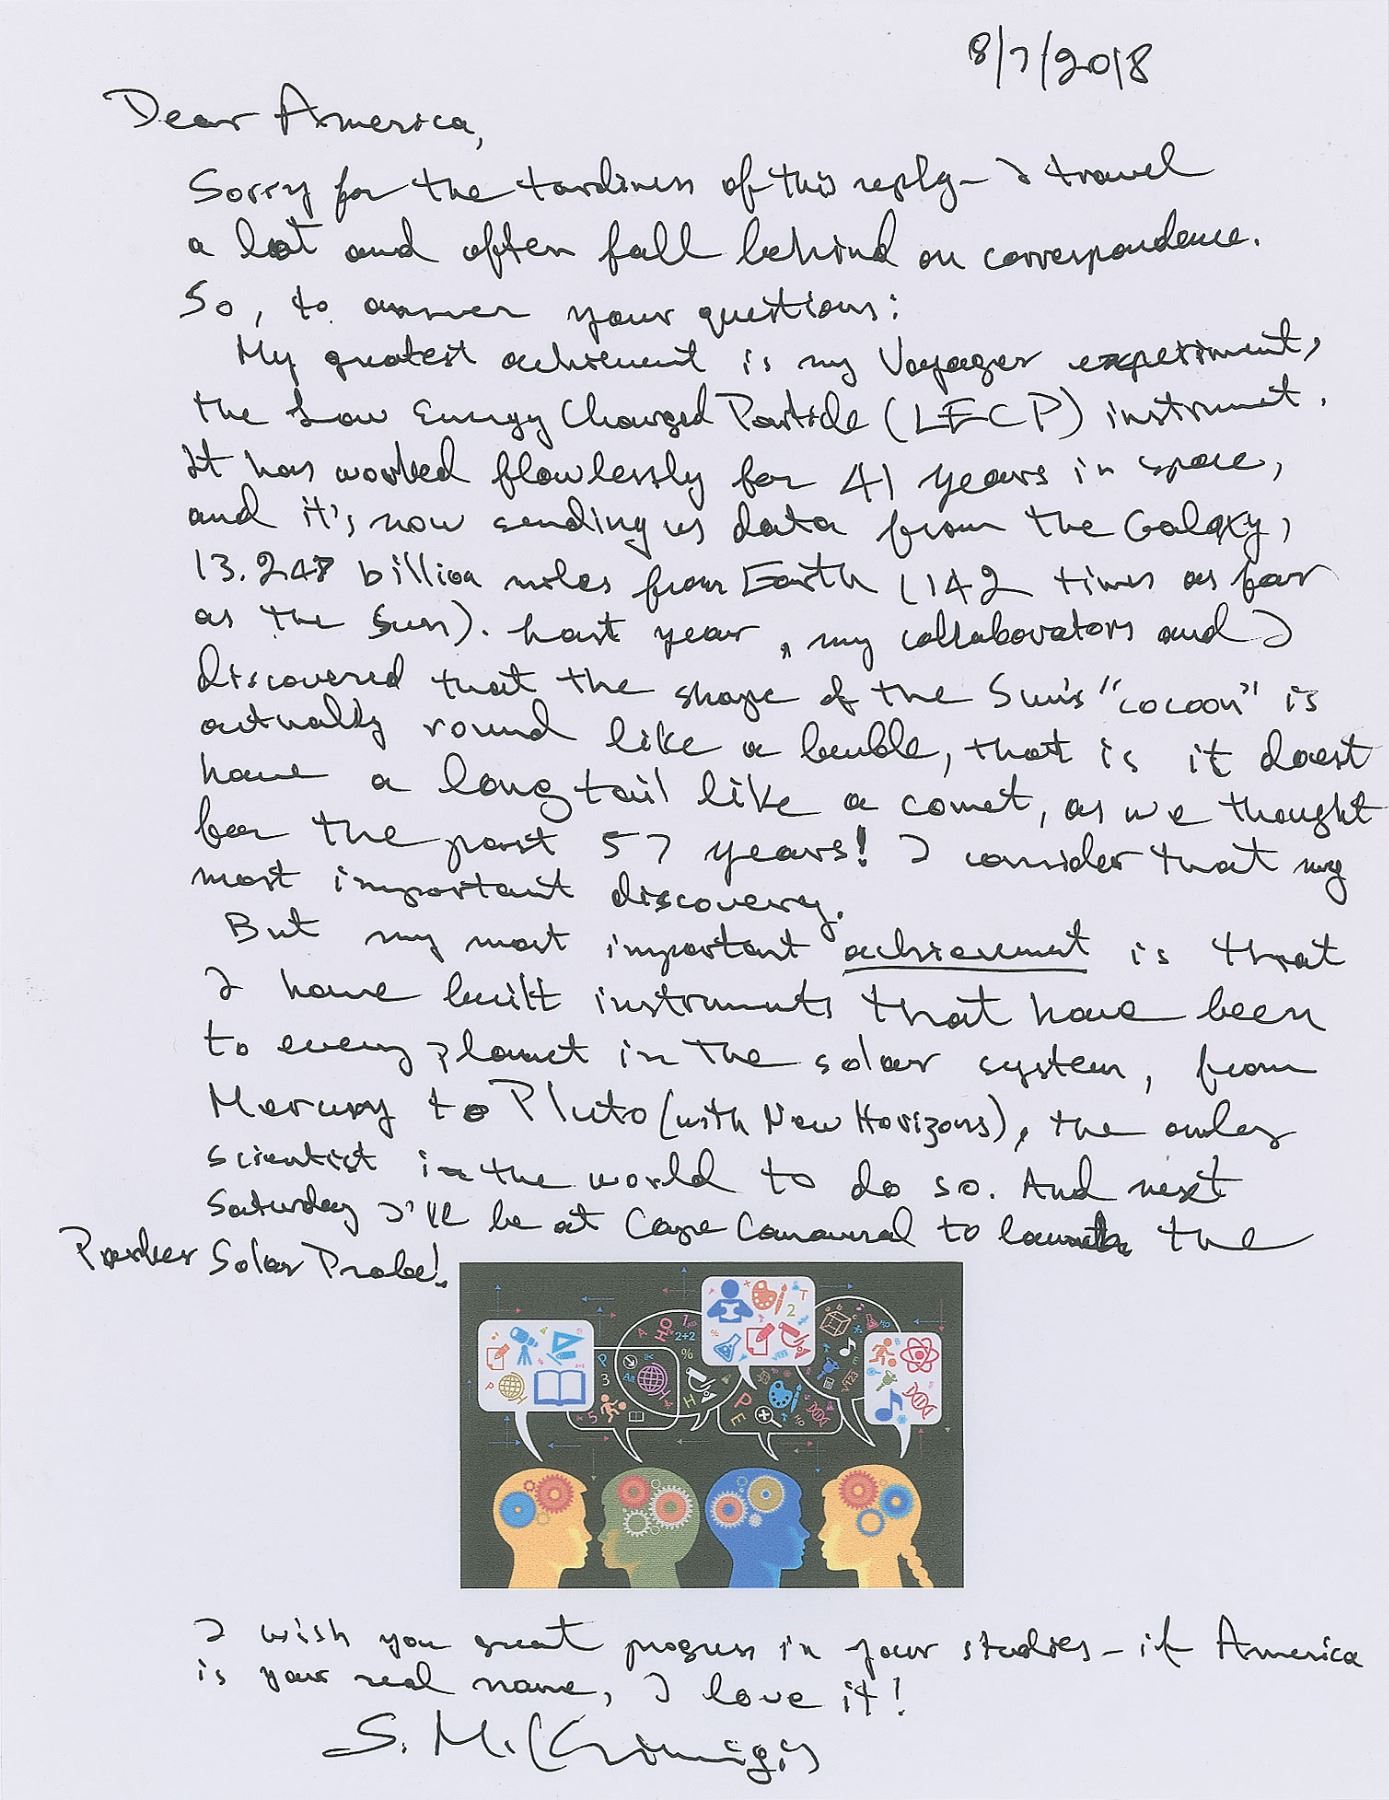 8/7/2018
Dear America,
Sorry for the tardiness of this reply - I travel
a lot and often fall behind on correspondence.
So, to answer your questions:
My greatest achievement is my Voyager experiment,
the Low Energy Charged Particle (LECP) instrument.
It has worked flawlessly for 41 years in space,
and it's now sending us data from the Galaxy,
13.247 billion miles from Earth (142 times as far
as the Sun). Last year, my collaborators and I
discovered that the shape of the Sun's "cocoon" is
actually round like a buble, that is it doesn't
have a long tail like a comet, as we thought
for the past 57 years! I consider that my
most important discovery.
But my most important achievement is that
I have built instruments that have been
to every planet in the solar system, from
Mercury to Pluto (with New Horizons), the only
scientist in the world to do so. And next
Saturday I'll be at Cape Canaveral to launch the
Parker Solar Probe!
H2O
2+2
%
2
T
P
3
5
H
P
E
√123
I wish you great progress in your studies - if America
is your real name, I love it!
S. M. Krimigis